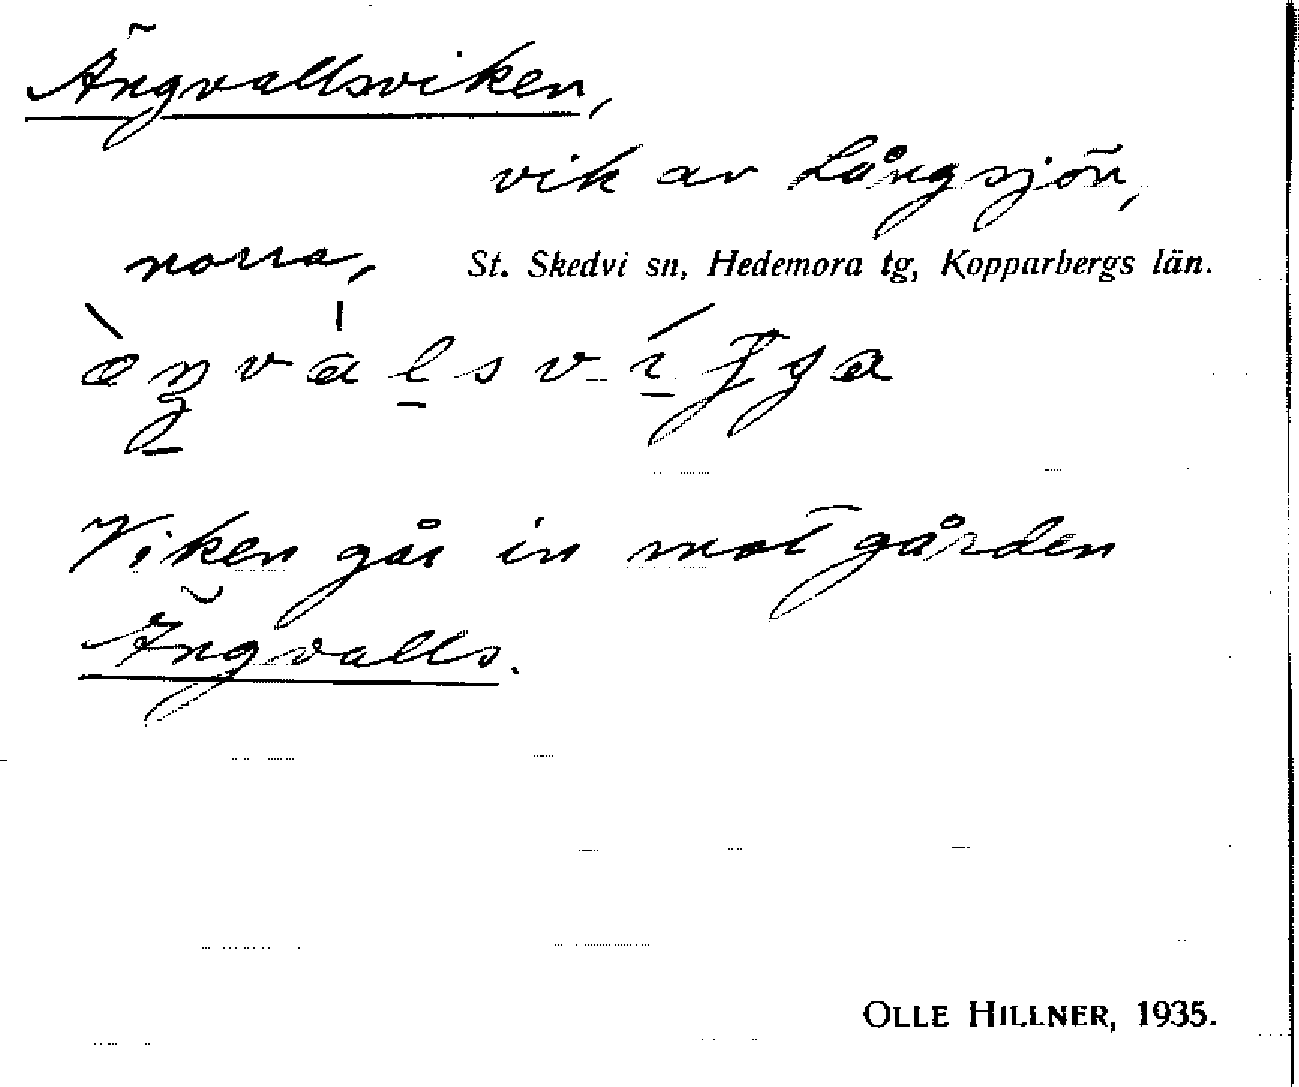 Ängvallsviken,
vik av Långsjön,
norra, St. Skedvi sn, Hedemora tg, Kopparbergs län.
Viken går in mot gården
Ängvalls.
OLLE HILLNER, 1935.